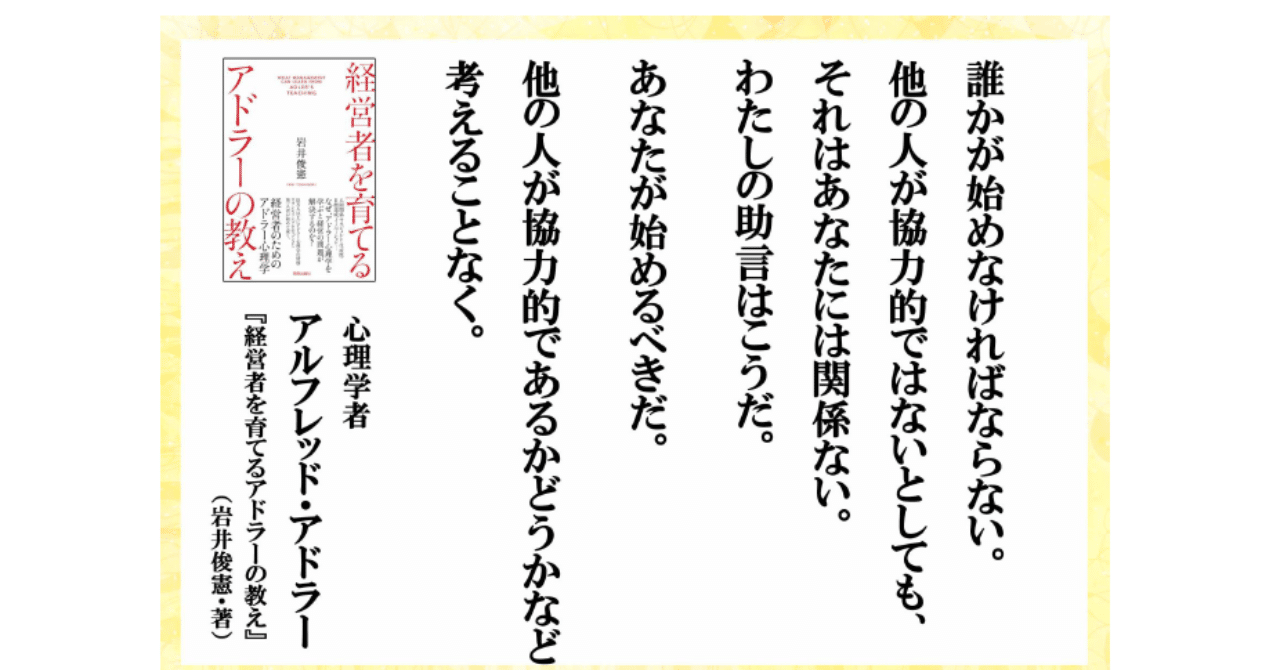 誰かが始めなければならない。
他の人が協力的ではないとしても、
それはあなたには関係ない。
わたしの助言はこうだ。
あなたが始めるべきだ。
他の人が協力的であるかどうかなど
考えることなく。
経営者を育てる
アドラーの教え
WHAT MANAGEMENT
CAN LEARN FROM
ADLER'S
TEACHING
岩井俊憲
なぜ、アドラー心理学を
学ぶと経営の課題が
解決するのか?
経営者のための
アドラー心理学
心理学者
アルフレッド・アドラー
『経営者を育てるアドラーの教え』
（岩井俊憲・著）